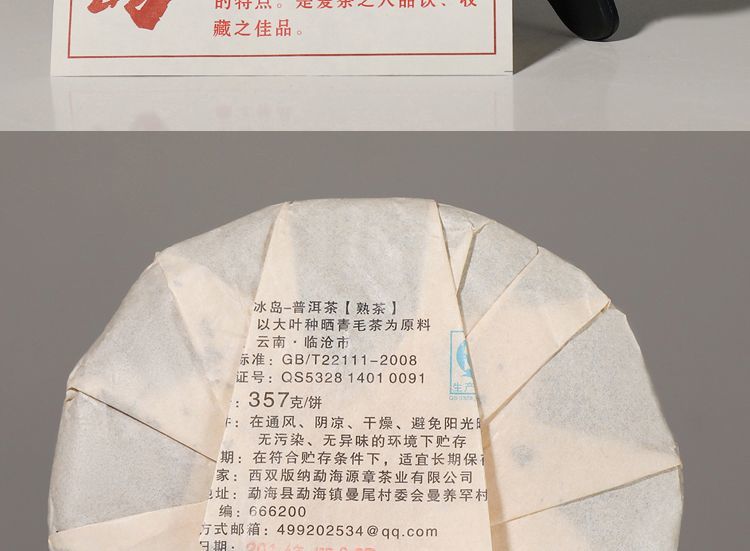 的特点。是爱茶之人品饮、收
藏之佳品。
冰岛-普洱茶【熟茶】
以大叶种晒青毛茶为原料
云南·临沧市
标准：GB/T22111-2008
证号：QS5328 1401 0091
：357克/饼
：在通风、阴凉、干燥、避免阳光
无污染、无异味的环境下贮存
期：在符合贮存条件下，适宜长期保
家：西双版纳勐海源章茶业有限公司
地址：勐海县勐海镇曼尾村委会曼养罕村
编：666200
方式邮箱：499202534@qq.com
日期：
生产